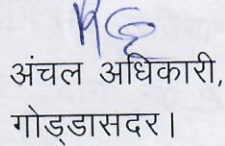 अंचल अधिकारी,
गोड्डासदर।